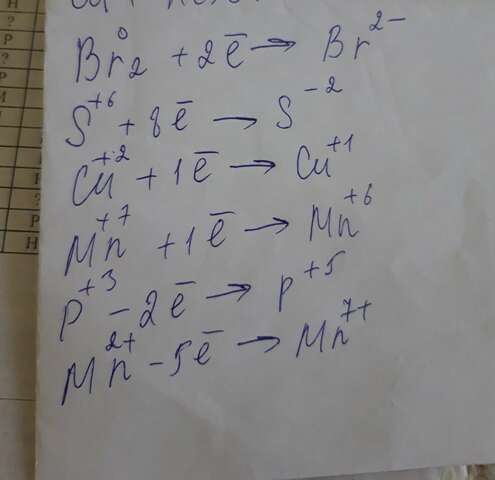 Br₂⁰ + 2ē → Br²⁻
S⁺⁶ + 8ē → S⁻²
Cu⁺² + 1ē → Cu⁺¹
Mn⁺⁷ + 1ē → Mn⁺⁶
P⁺³ - 2ē → P⁺⁵
Mn²⁺ - 5ē → Mn⁷⁺